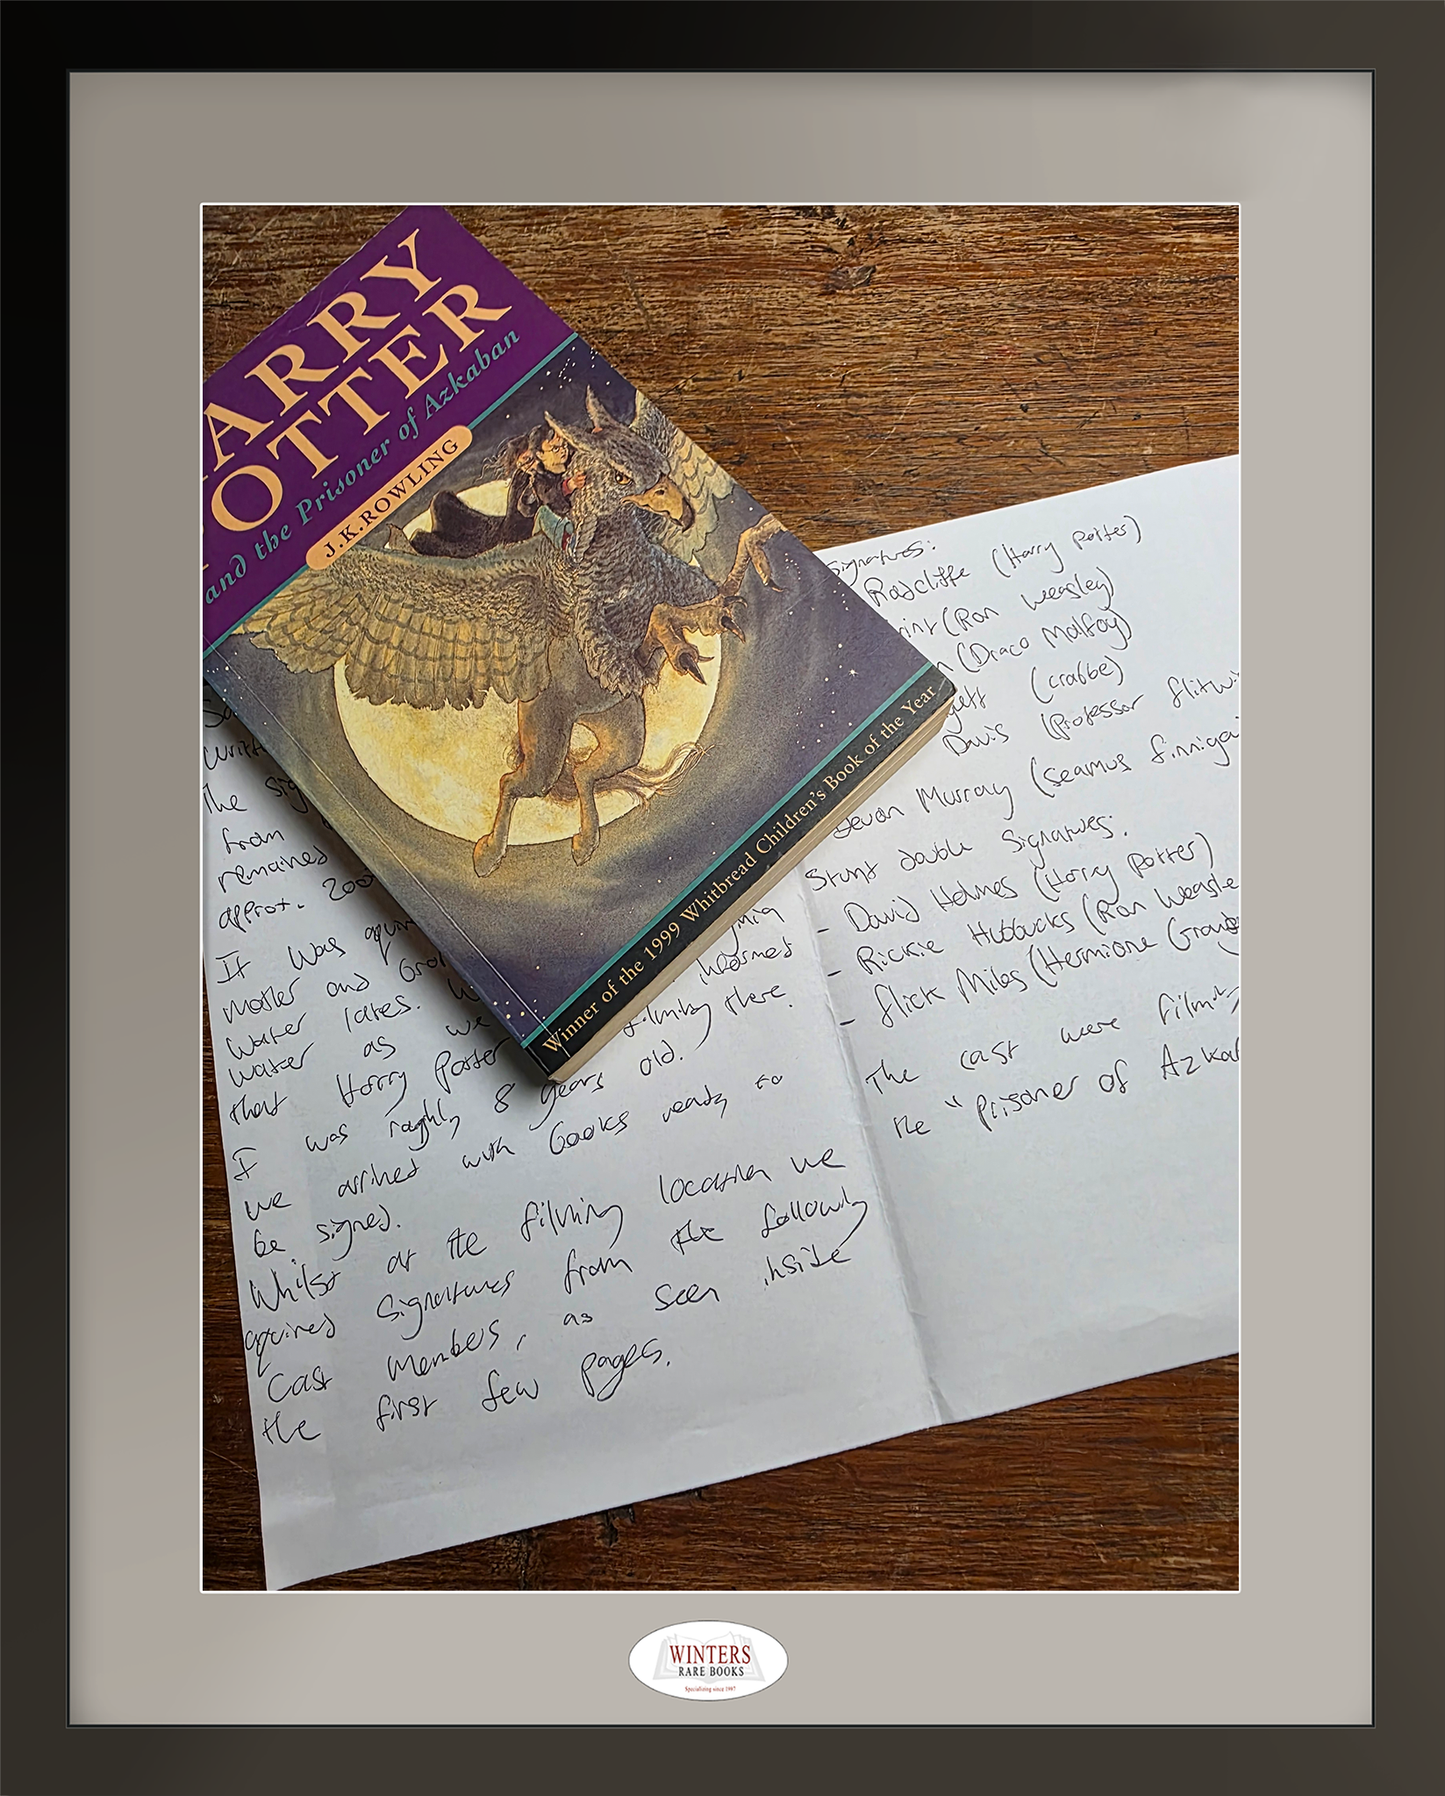 HARRY
POTTER
and the Prisoner of Azkaban
J.K.ROWLING
Winner of the 1999 Whitbread Children's Book of the Year
the sig
from
remained
approx. 200
It was
mother and
water lates.
water as we
that Harry Potter filming there.
I was roughly 8 years old.
we arrived with books ready to
be signed.
Whilst at the filming location we
aquired signatures from the following
Cast members, as seen inside
the first few pages.
Signatures:
Radcliffe (Harry Potter)
rint (Ron Weasley)
n (Draco Malfoy)
(crabbe)
Davis (Professor flitwi
Devon Murray (Seamus finniga
Stunt double Signatures:
- David Holmes (Harry Potter)
- Rickie Hubbucks (Ron Weasle
- flick Miles (Hermione Grange
The cast were filming
the "Prisoner of Azka
WINTERS
RARE BOOKS
Specializing since 1987